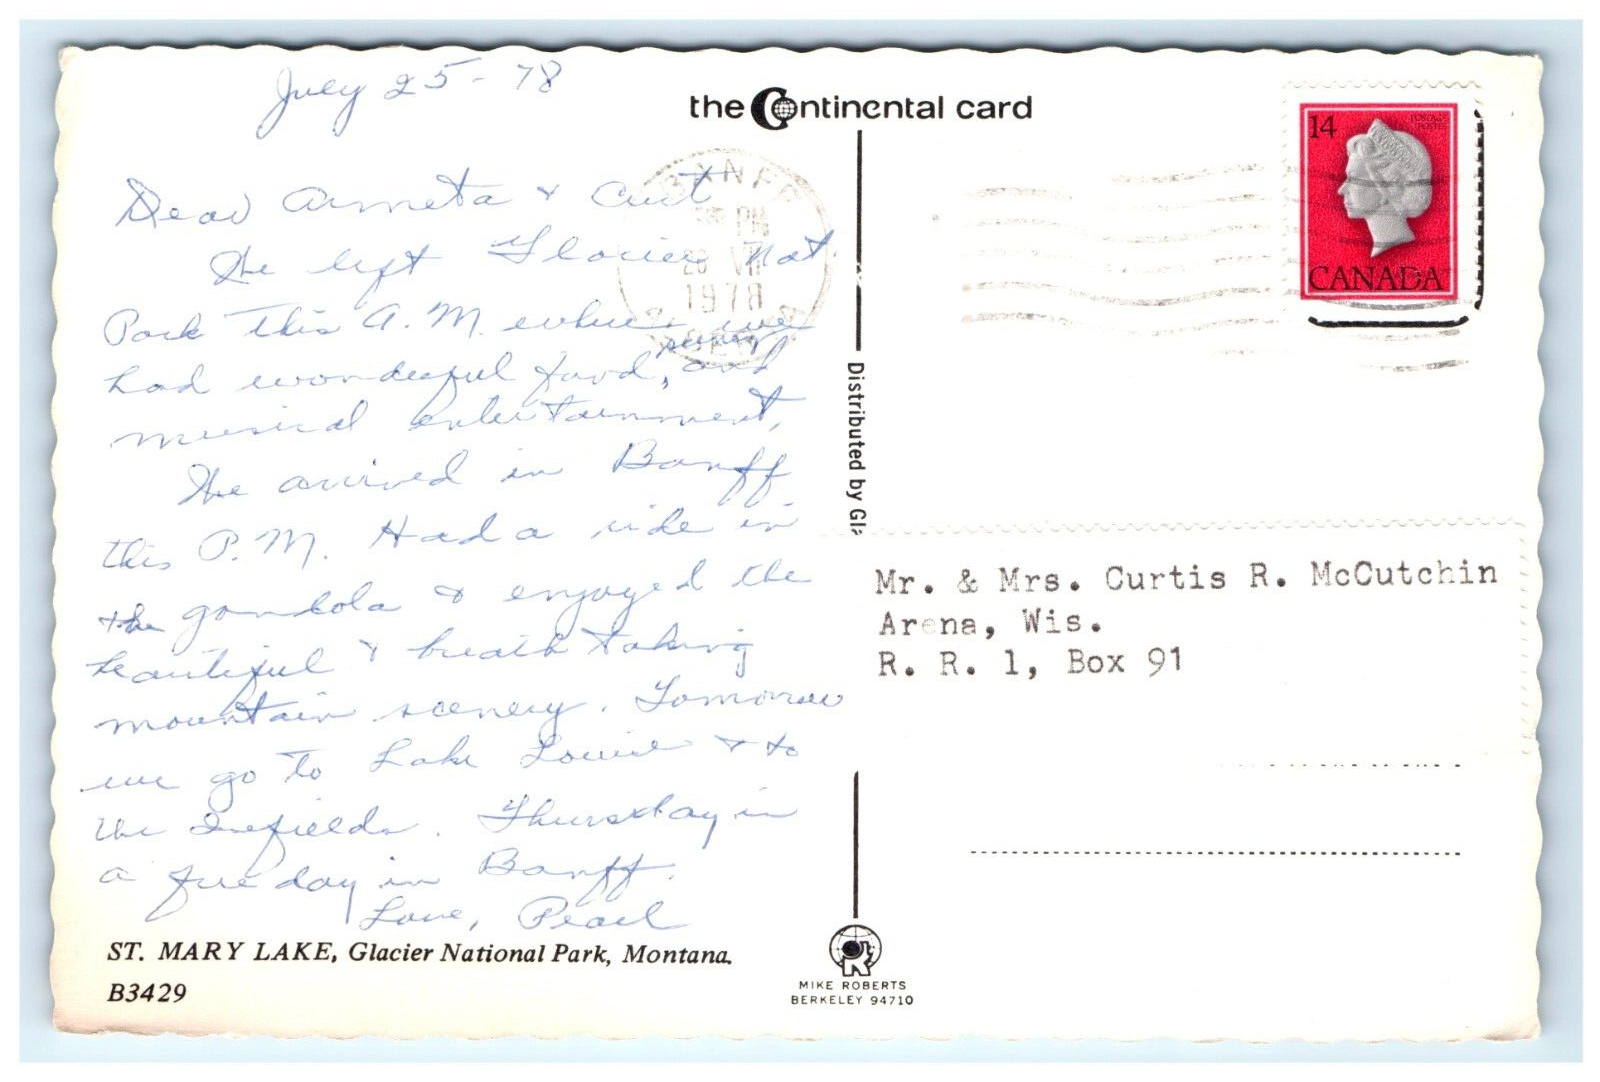 July 25 - 78
the Continental card
Dear Arneta & Curt
We left Glacier Nat.
Park this A.M. where we
had wonderful food, scenery and
musical entertainment,
We arrived in Banff
this P.M. Had a ride in
the gondola & enjoyed the
beautiful & breath taking
mountain scenery. Tomorrow
we go to Lake Louise & to
the Icefields. Thursday in
a free day in Banff.
Love, Pearl
ST. MARY LAKE, Glacier National Park, Montana.
B3429
PM
28 VII
1978
14
POSTAGE
POSTES
CANADA
Distributed by Gla
Mr. & Mrs. Curtis R. McCutchin
Arena, Wis.
R. R. 1, Box 91
MIKE ROBERTS
BERKELEY 94710